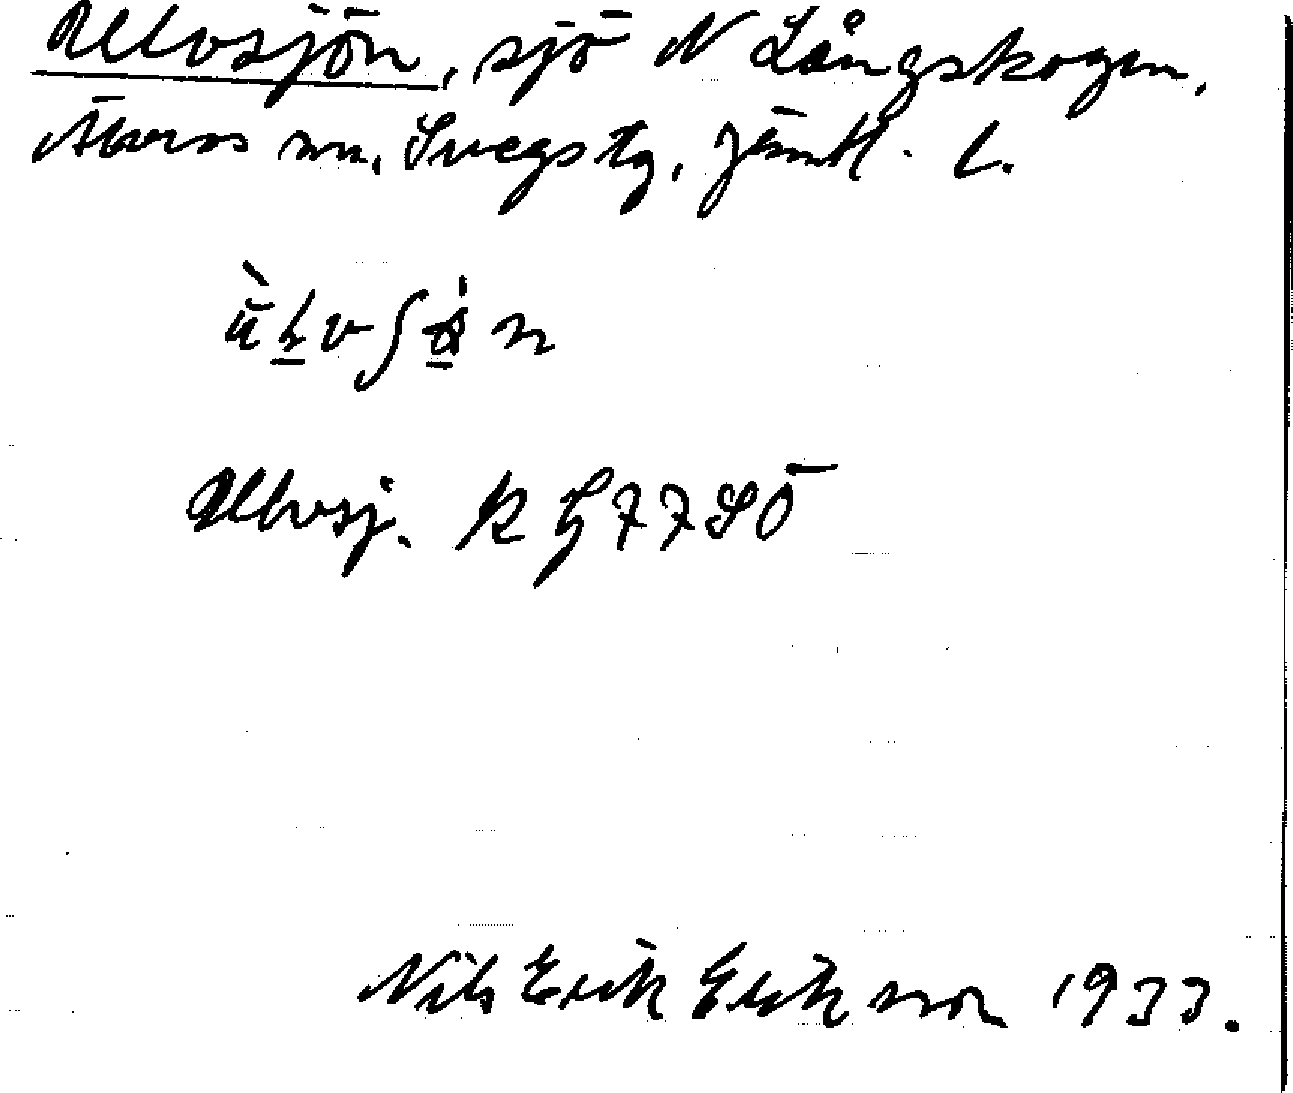 Ulvsjön, sjö N Långskogen,
Älvros sn, Svegs tg, Jämtl. l.
Ulvsj. K G77SÖ
Nils Erik Erikson 1933.